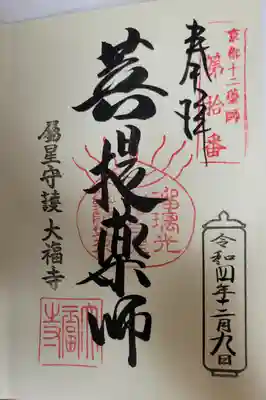 京都十二薬師
第拾番
奉拝
菩提薬師
瑠璃光
属星守護 大福寺
令和四年十二月九日
大福寺